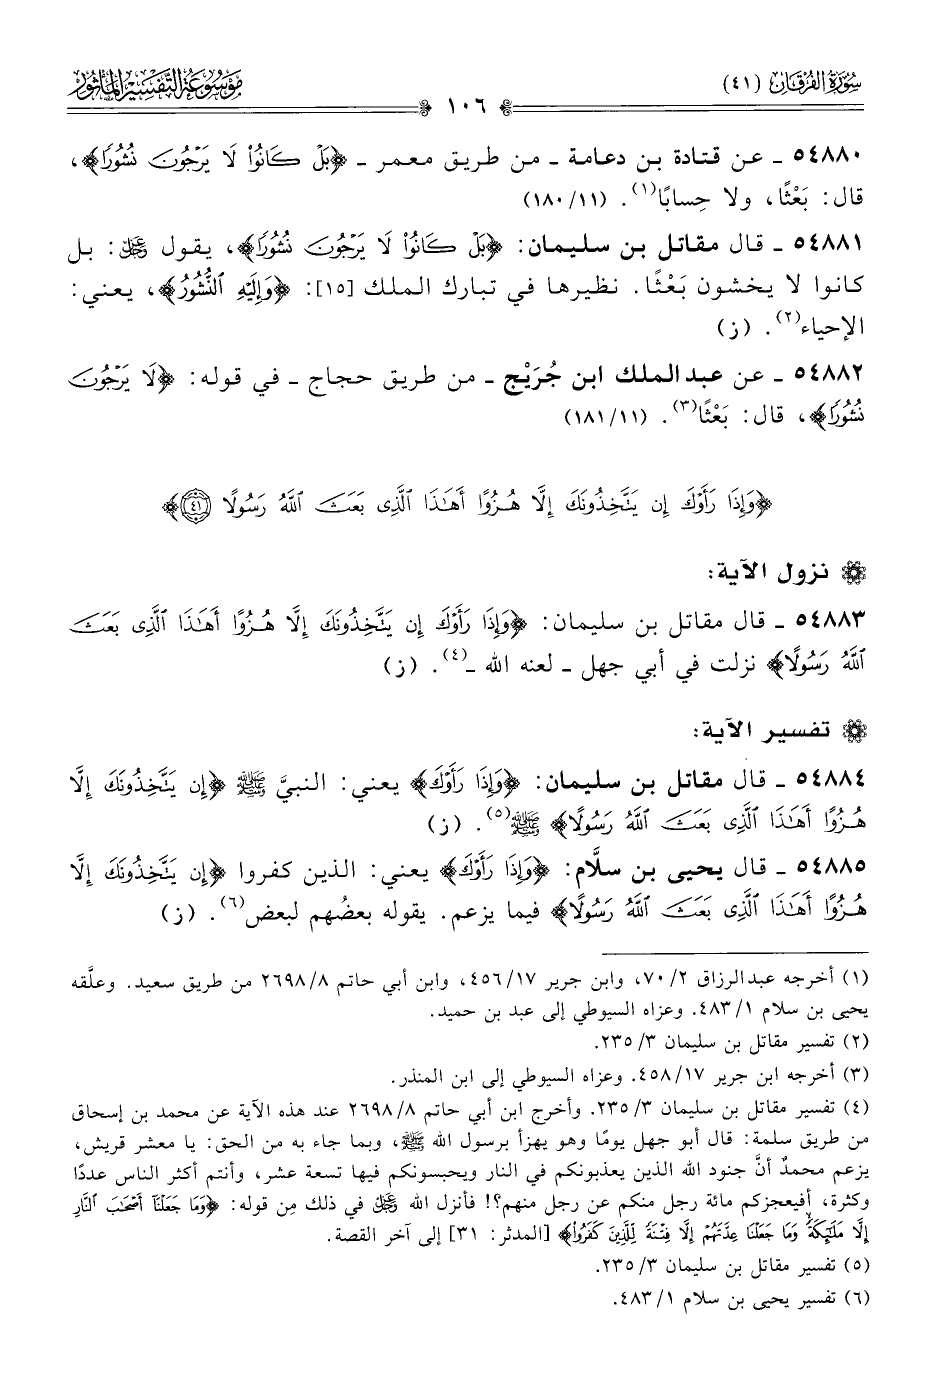 سُورَةُ الفُرْقَان (٤١)
١٠٦
مَوْسُوعَةُ التَّفْسِيرِ المَأْثُور
٥٤٨٨٠ ـ عن قتادة بن دعامة ـ من طريق معمر ـ ﴿بَلْ كَانُوا۟ لَا يَرْجُونَ نُشُورًا﴾،
قال: بَعْثًا، ولا حِسابًا(١). (١١/ ١٨٠)
٥٤٨٨١ ـ قال مقاتل بن سليمان: ﴿بَلْ كَانُوا۟ لَا يَرْجُونَ نُشُورًا﴾، يقول ﷿: بل
كانوا لا يخشون بَعْثًا. نظيرها في تبارك الملك [١٥]: ﴿وَإِلَيْهِ ٱلنُّشُورُ﴾، يعني:
الإحياء(٢). (ز)
٥٤٨٨٢ ـ عن عبد الملك ابن جُرَيْج ـ من طريق حجاج ـ في قوله: ﴿لَا يَرْجُونَ
نُشُورًا﴾، قال: بَعْثًا(٣). (١١/ ١٨١)
﴿وَإِذَا رَأَوْكَ إِن يَتَّخِذُونَكَ إِلَّا هُزُوًا أَهَـٰذَا ٱلَّذِى بَعَثَ ٱللَّهُ رَسُولًا ۝٤١﴾
نزول الآية:
٥٤٨٨٣ ـ قال مقاتل بن سليمان: ﴿وَإِذَا رَأَوْكَ إِن يَتَّخِذُونَكَ إِلَّا هُزُوًا أَهَـٰذَا ٱلَّذِى بَعَثَ
ٱللَّهُ رَسُولًا﴾ نزلت في أبي جهل ـ لعنه الله ـ(٤). (ز)
تفسير الآية:
٥٤٨٨٤ ـ قال مقاتل بن سليمان: ﴿وَإِذَا رَأَوْكَ﴾ يعني: النبيَّ ﷺ ﴿إِن يَتَّخِذُونَكَ إِلَّا
هُزُوًا أَهَـٰذَا ٱلَّذِى بَعَثَ ٱللَّهُ رَسُولًا﴾ ﷺ(٥). (ز)
٥٤٨٨٥ ـ قال يحيى بن سلَّام: ﴿وَإِذَا رَأَوْكَ﴾ يعني: الذين كفروا ﴿إِن يَتَّخِذُونَكَ إِلَّا
هُزُوًا أَهَـٰذَا ٱلَّذِى بَعَثَ ٱللَّهُ رَسُولًا﴾ فيما يزعم. يقوله بعضُهم لبعض(٦). (ز)
(١) أخرجه عبد الرزاق ٢/ ٧٠، وابن جرير ١٧/ ٤٥٦، وابن أبي حاتم ٨/ ٢٦٩٨ من طريق سعيد. وعلَّقه
يحيى بن سلام ١/ ٤٨٣. وعزاه السيوطي إلى عبد بن حميد.
(٢) تفسير مقاتل بن سليمان ٣/ ٢٣٥.
(٣) أخرجه ابن جرير ١٧/ ٤٥٨. وعزاه السيوطي إلى ابن المنذر.
(٤) تفسير مقاتل بن سليمان ٣/ ٢٣٥. وأخرج ابن أبي حاتم ٨/ ٢٦٩٨ عند هذه الآية عن محمد بن إسحاق
من طريق سلمة: قال أبو جهل يومًا وهو يهزأ برسول الله ﷺ، وبما جاء به من الحق: يا معشر قريش،
يزعم محمدٌ أنَّ جنود الله الذين يعذبونكم في النار ويحبسونكم فيها تسعة عشر، وأنتم أكثر الناس عددًا
وكثرة، أفيعجزكم مائة رجل منكم عن رجل منهم؟! فأنزل الله ﷿ في ذلك مِن قوله: ﴿وَمَا جَعَلْنَآ أَصْحَـٰبَ ٱلنَّارِ
إِلَّا مَلَـٰٓئِكَةً ۙ وَمَا جَعَلْنَا عِدَّتَهُمْ إِلَّا فِتْنَةً لِّلَّذِينَ كَفَرُوا۟﴾ [المدثر: ٣١] إلى آخر القصة.
(٥) تفسير مقاتل بن سليمان ٣/ ٢٣٥.
(٦) تفسير يحيى بن سلام ١/ ٤٨٣.